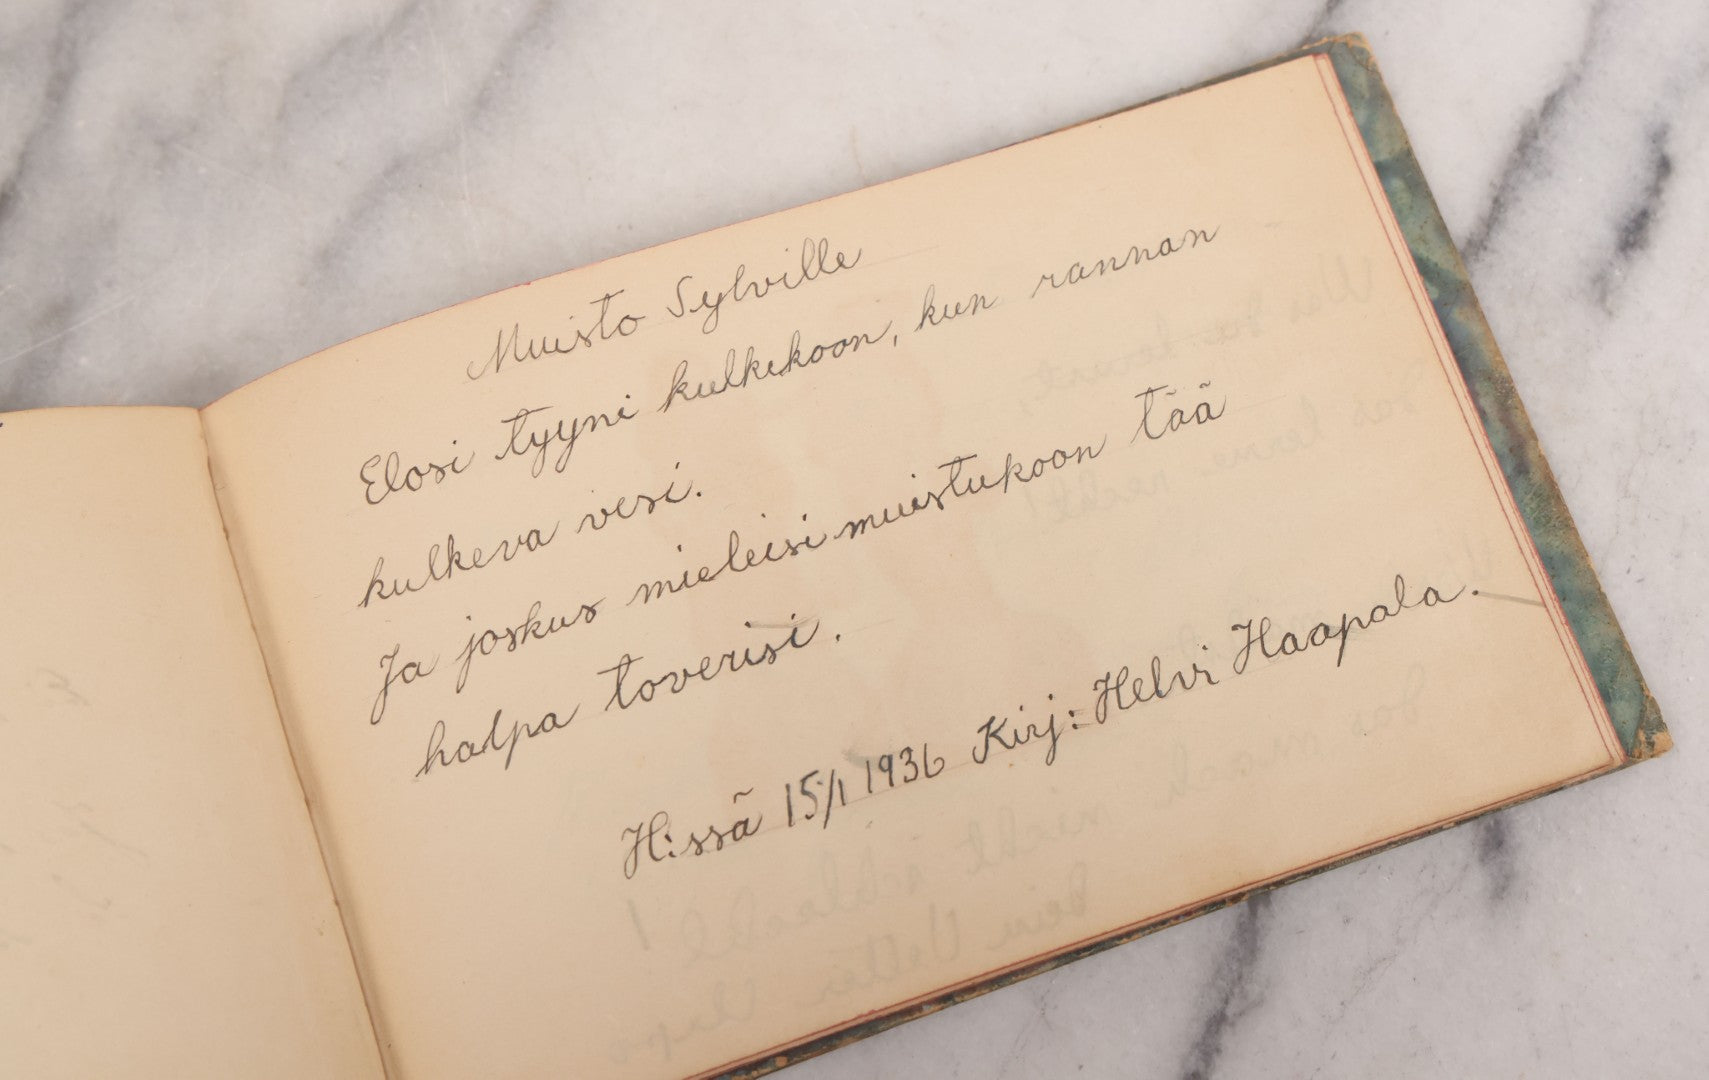 Muisto Sylville
Elosi tyyni kulkekoon, kun rannan
kulkeva vesi.
Ja joskus mieleisi muistukoon tää
halpa toverisi.
H:ssä 15/1 1936 Kirj: Helvi Haapala.